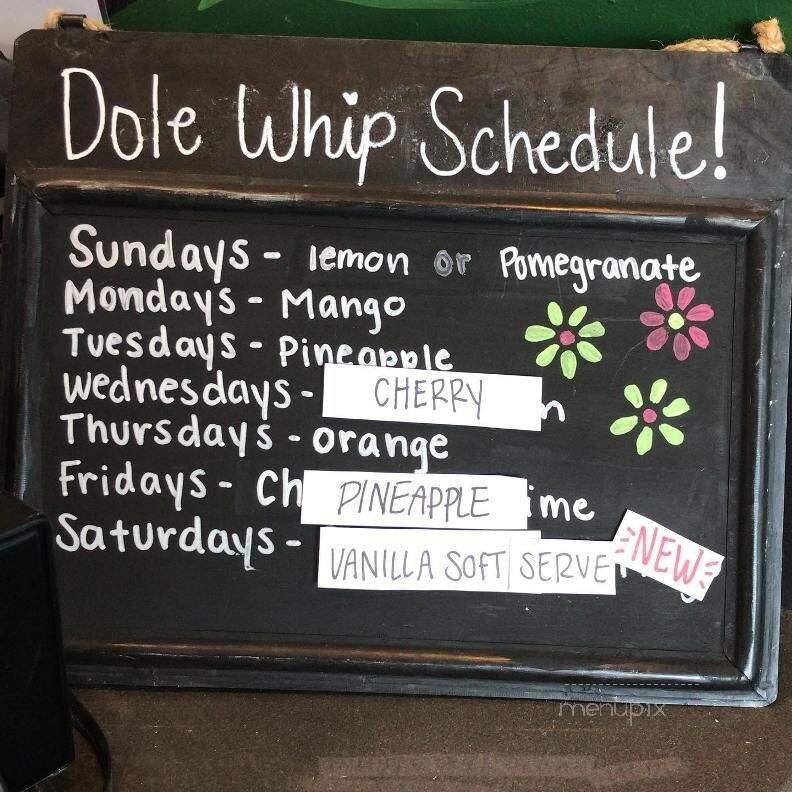 Dole Whip Schedule!
Sundays - lemon or Pomegranate
Mondays - Mango
Tuesdays - Pineapple
Wednesdays - CHERRY
Thursdays - orange
Fridays - Ch PINEAPPLE ime
Saturdays - VANILLA SOFT SERVE NEW
menupix